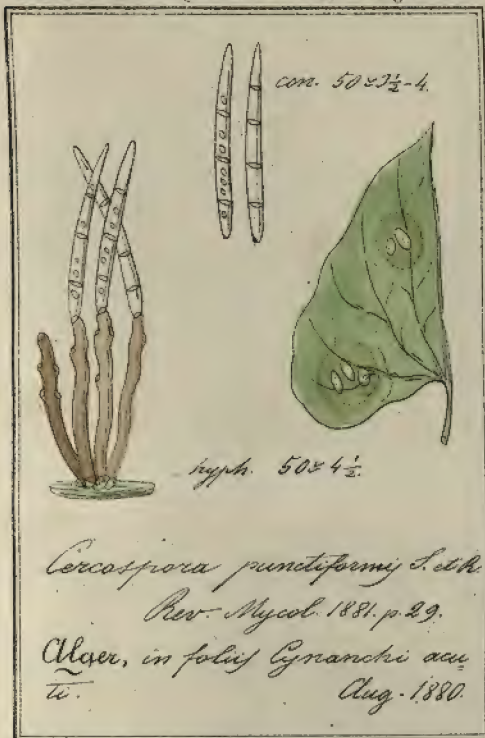 con. 50 ≈ 3½-4.
hyph. 50 ≈ 4½.
Cercospora punctiformis S. et R.
Rev. Mycol. 1881. p. 29.
Alger, in foliis Cynanchi acu=
ti. Aug. 1880.